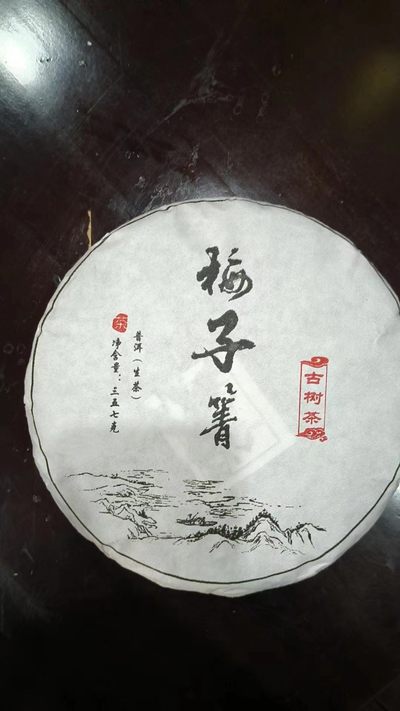 古树茶
梅子箐
普洱（生茶）
茶
净含量：三五七克